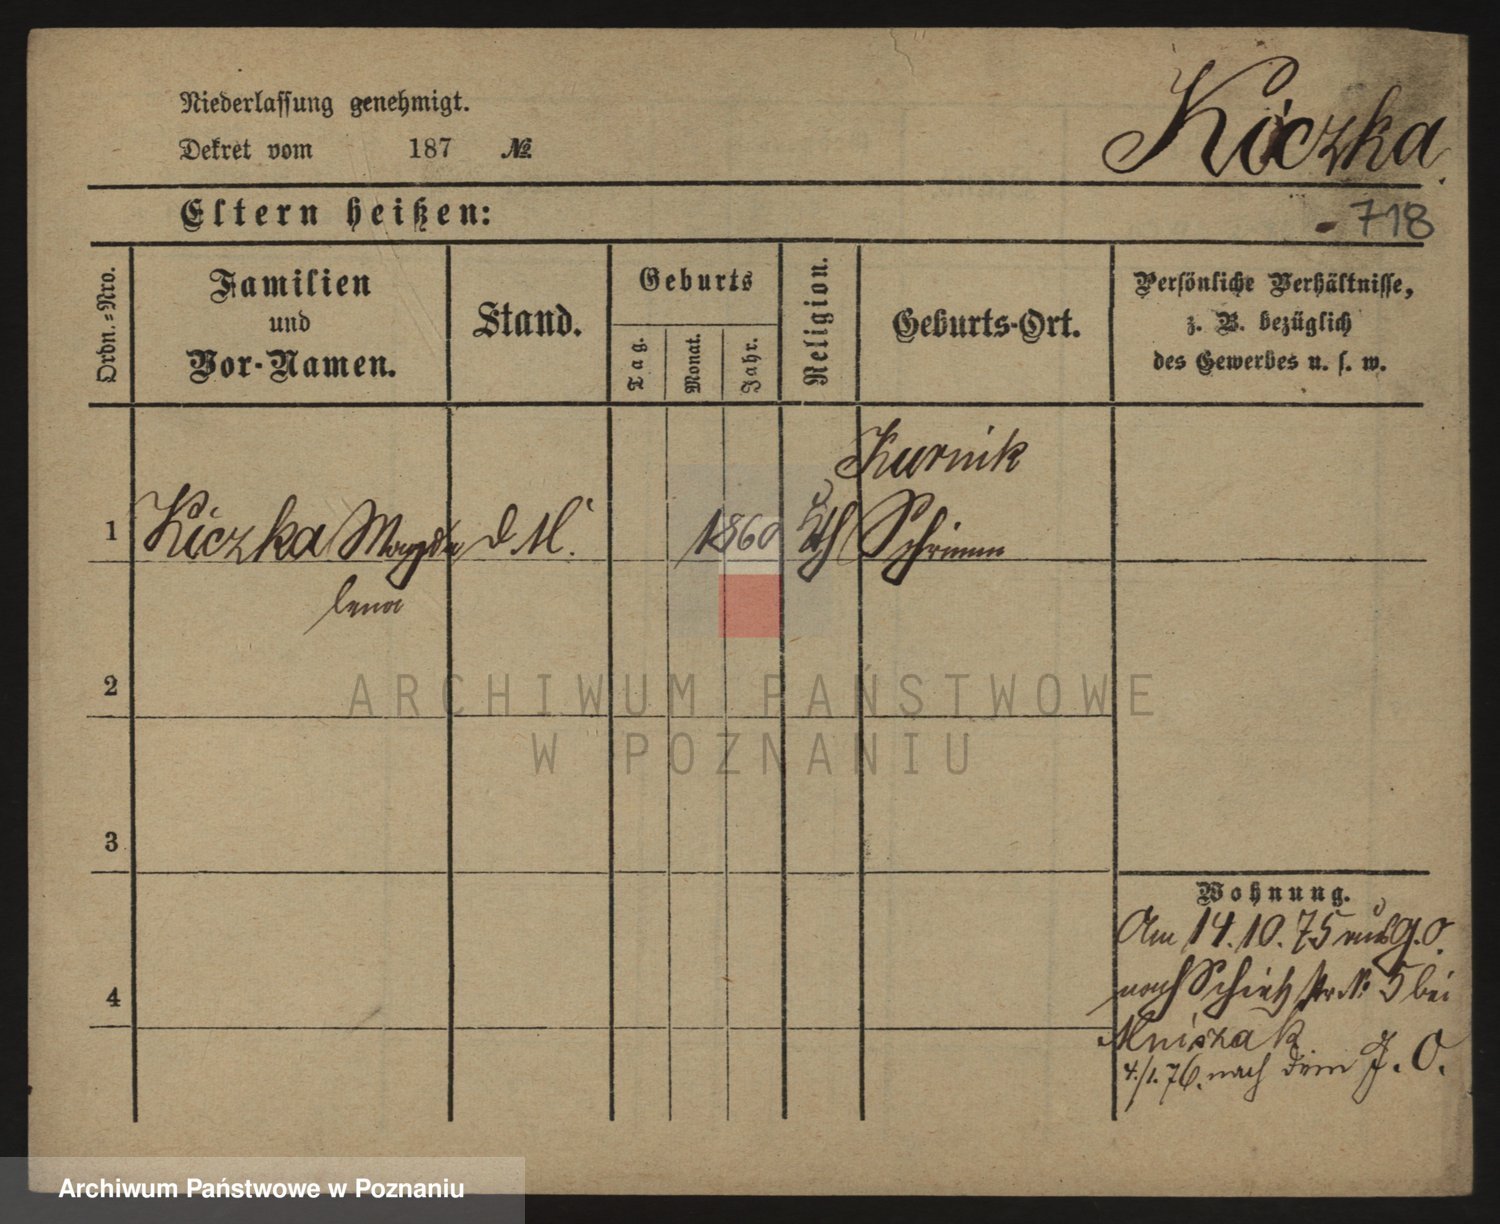 Niederlassung genehmigt.
Dekret vom 187 №
Kiczka
Eltern heißen:
718
Ordn.-Nro.
Familien
und
Vor-Namen.
Stand.
Geburts
Tag.
Monat.
Jahr.
Religion.
Geburts-Ort.
Persönliche Verhältnisse,
z. B. bezüglich
des Gewerbes u. s. w.
Kurnik
1 Kiczka Magda d. M. 1860 kth Schrimm
lena
2
ARCHIWUM PAŃSTWOWE
W POZNANIU
3
Wohnung.
Am 14.10.75 aus g. O.
nach Schütz str. № 5 bei
4
Mniszak
4./1.76. nach dem J. O.
Archiwum Państwowe w Poznaniu